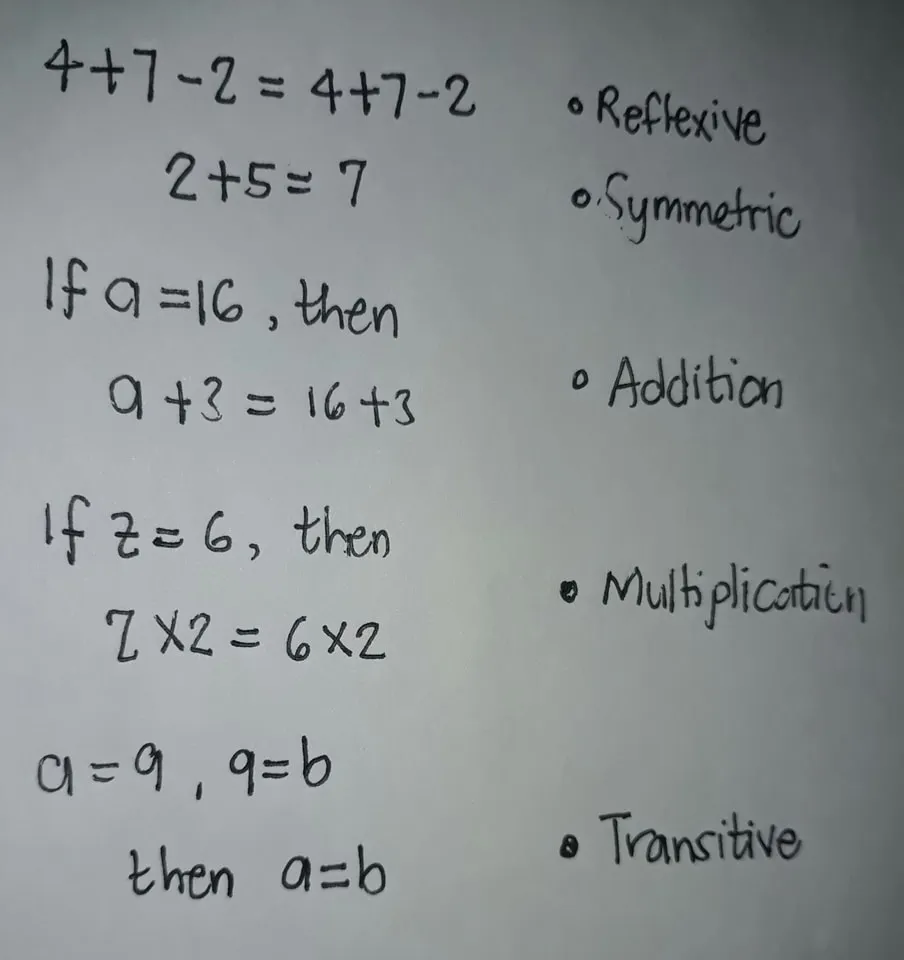 4+7-2 = 4+7-2 • Reflexive
2+5 = 7 • Symmetric
If a = 16, then
a+3 = 16+3 • Addition
If z = 6, then
z x 2 = 6 x 2 • Multiplication
a = 9, 9 = b
then a = b • Transitive